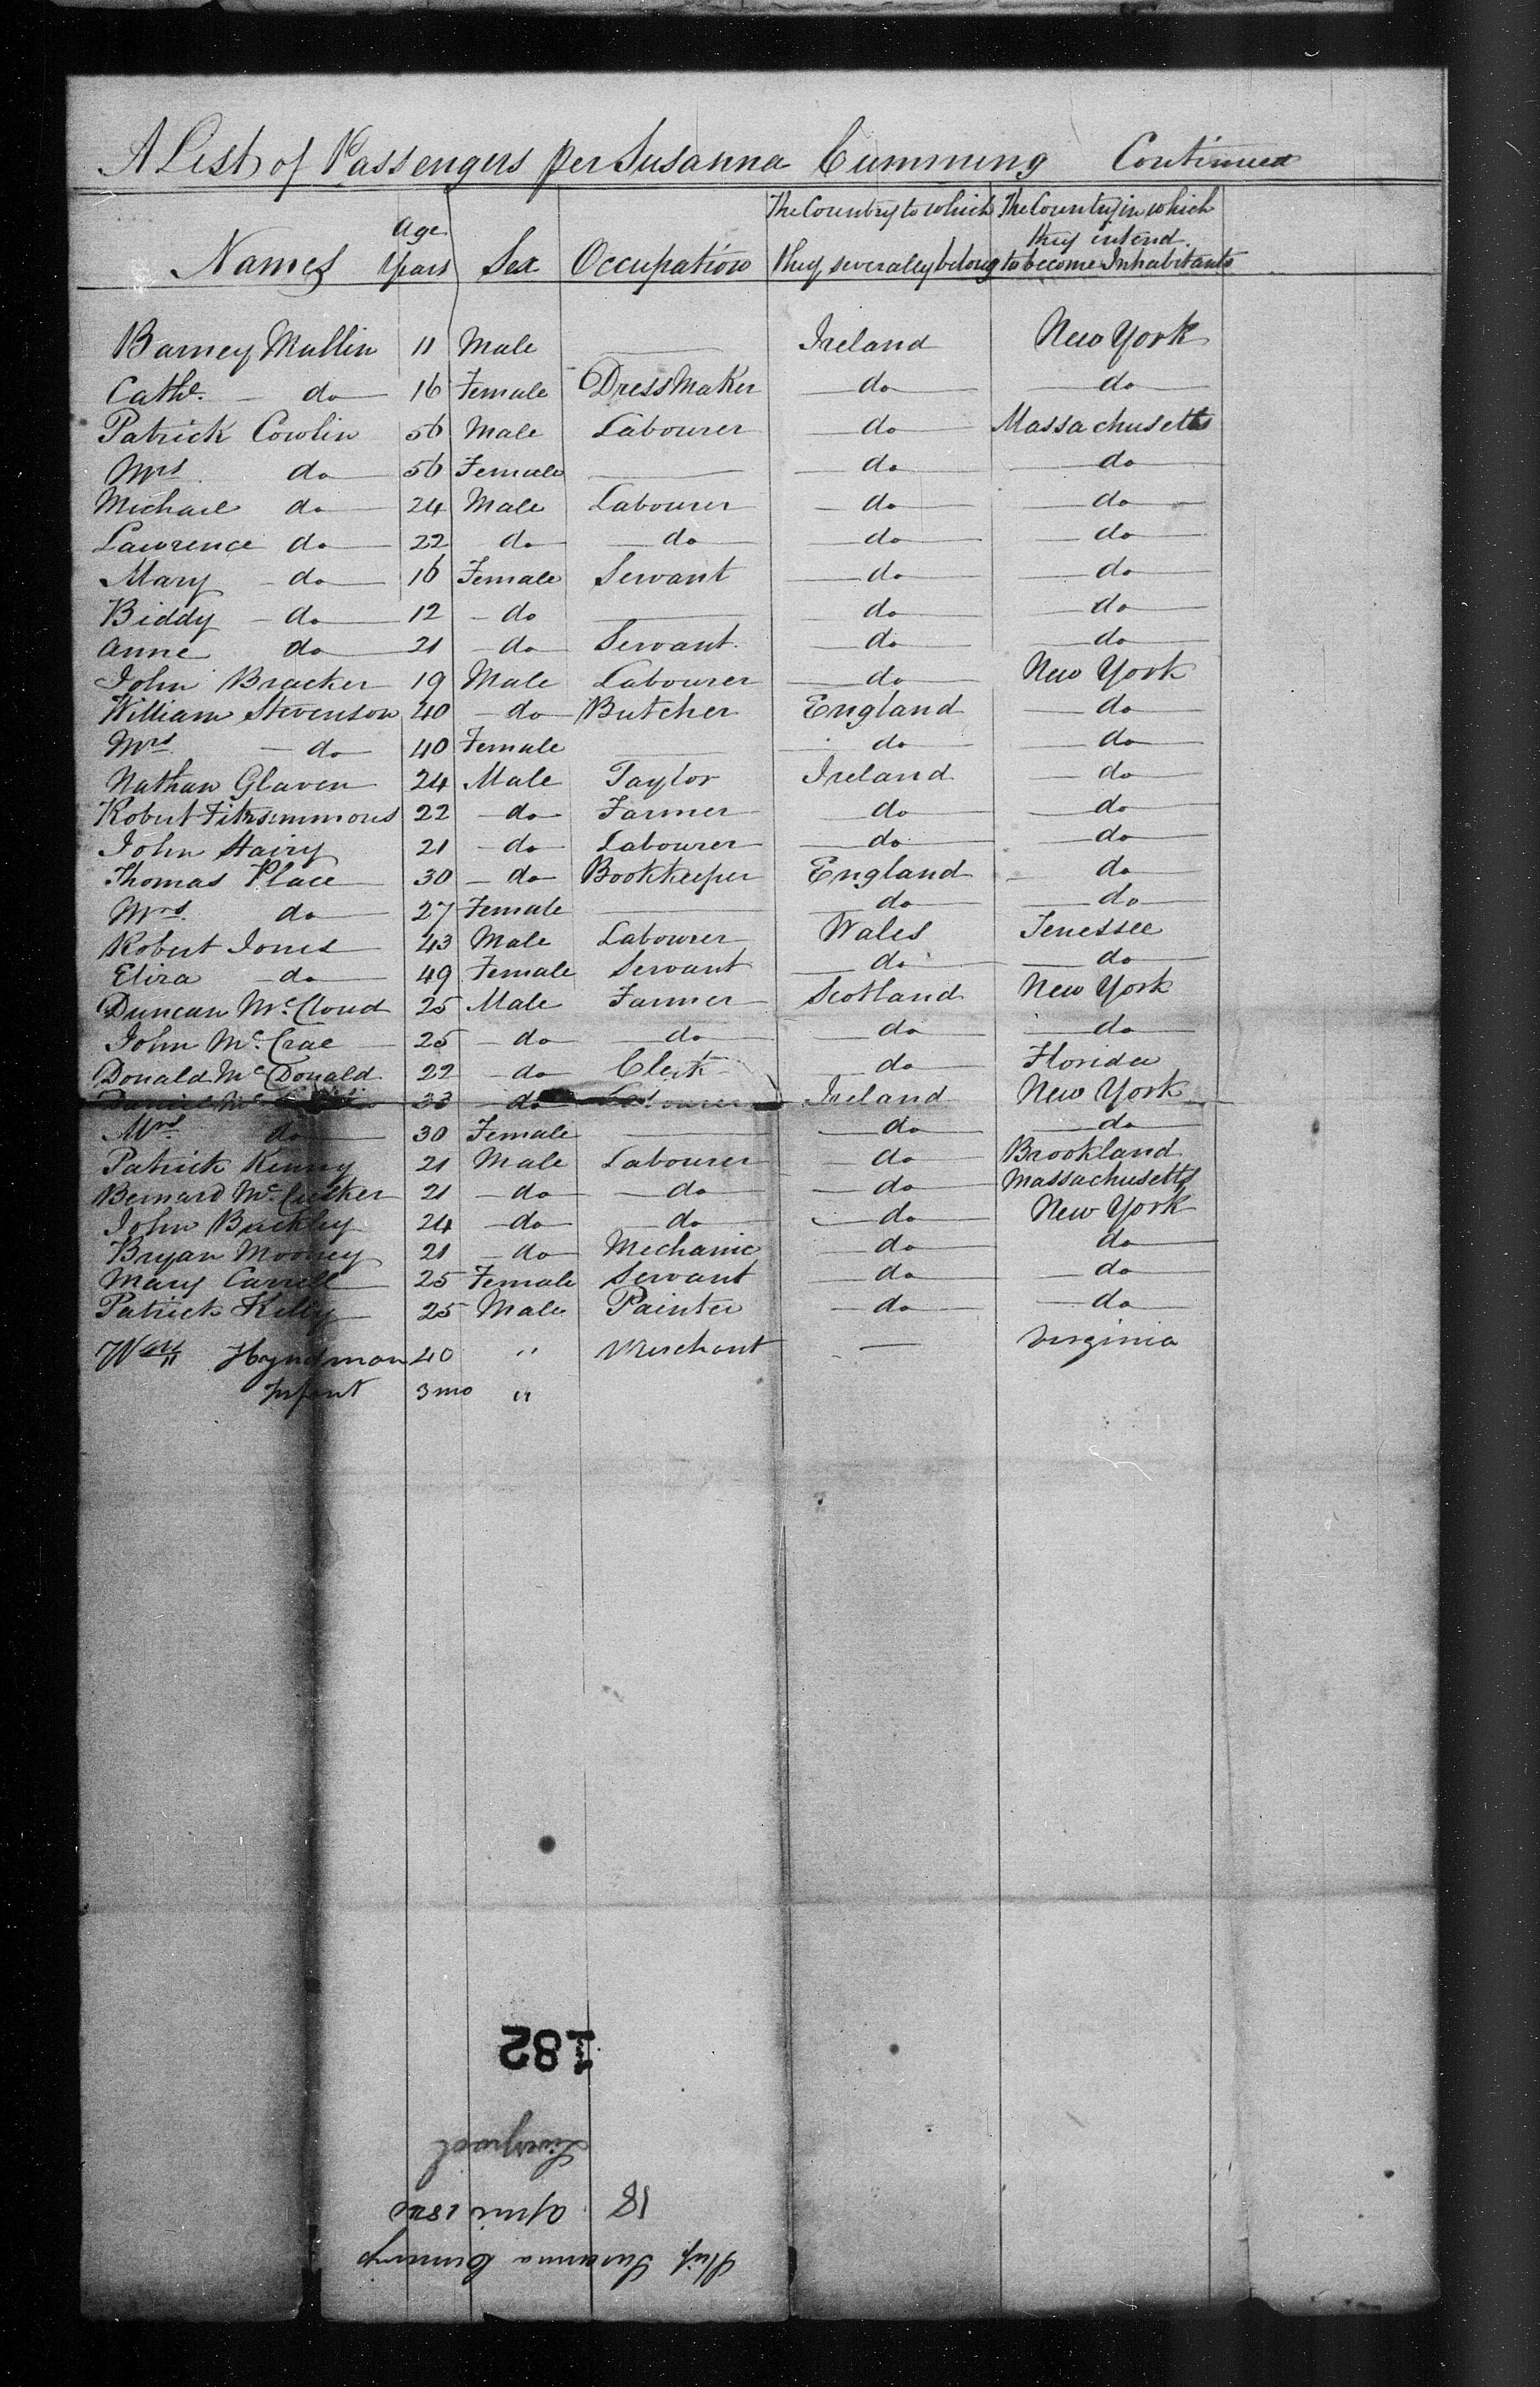 A List of Passengers per Susanna Cumming Continued
Names Age Years Sex Occupation The Country to which they severally belong The Country in which they intend to become Inhabitants
Barney Mullin 11 Male — Ireland New York
Cathe. do 16 Female Dress Maker do do
Patrick Cowlin 56 Male Labourer do Massachusetts
Mrs do 56 Female — do do
Michael do 24 Male Labourer do do
Lawrence do 22 do do do do
Mary do 16 Female Servant do do
Biddy do 12 do — do do
Anne do 21 do Servant do do
John Bracker 19 Male Labourer do New York
William Stevenson 40 do Butcher England do
Mrs do 40 Female — do do
Nathan Glaven 24 Male Taylor Ireland do
Robert Fitzsimmons 22 do Farmer do do
John Hairy 21 do Labourer do do
Thomas Place 30 do Bookkeeper England do
Mrs do 27 Female — do do
Robert Jones 43 Male Labourer Wales Tenessee
Eliza do 49 Female Servant do do
Duncan McCloud 25 Male Farmer Scotland New York
John McCrae 25 do do do do
Donald McDonald 22 do Clerk do Florida
Daniel Mc 33 do Labourer Ireland New York
Mrs do 30 Female — do do
Patrick Kenny 21 Male Labourer do Brookland
Bernard McCusker 21 do do do Massachusetts
John Buckley 24 do do do New York
Bryan Mooney 21 do Mechanic do do
Mary Carrell 25 Female Servant do do
Patrick Kelly 25 Male Painter do do
Wm Hyndman 40 " Merchant — Virginia
Infant 3 mo "
182
Ship Susanna Cumming
18 April
Liverpool